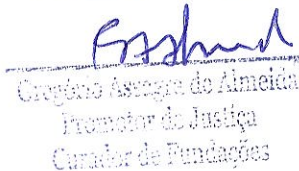 Gregório Assagra de Almeida
Promotor de Justiça
Curador de Fundações